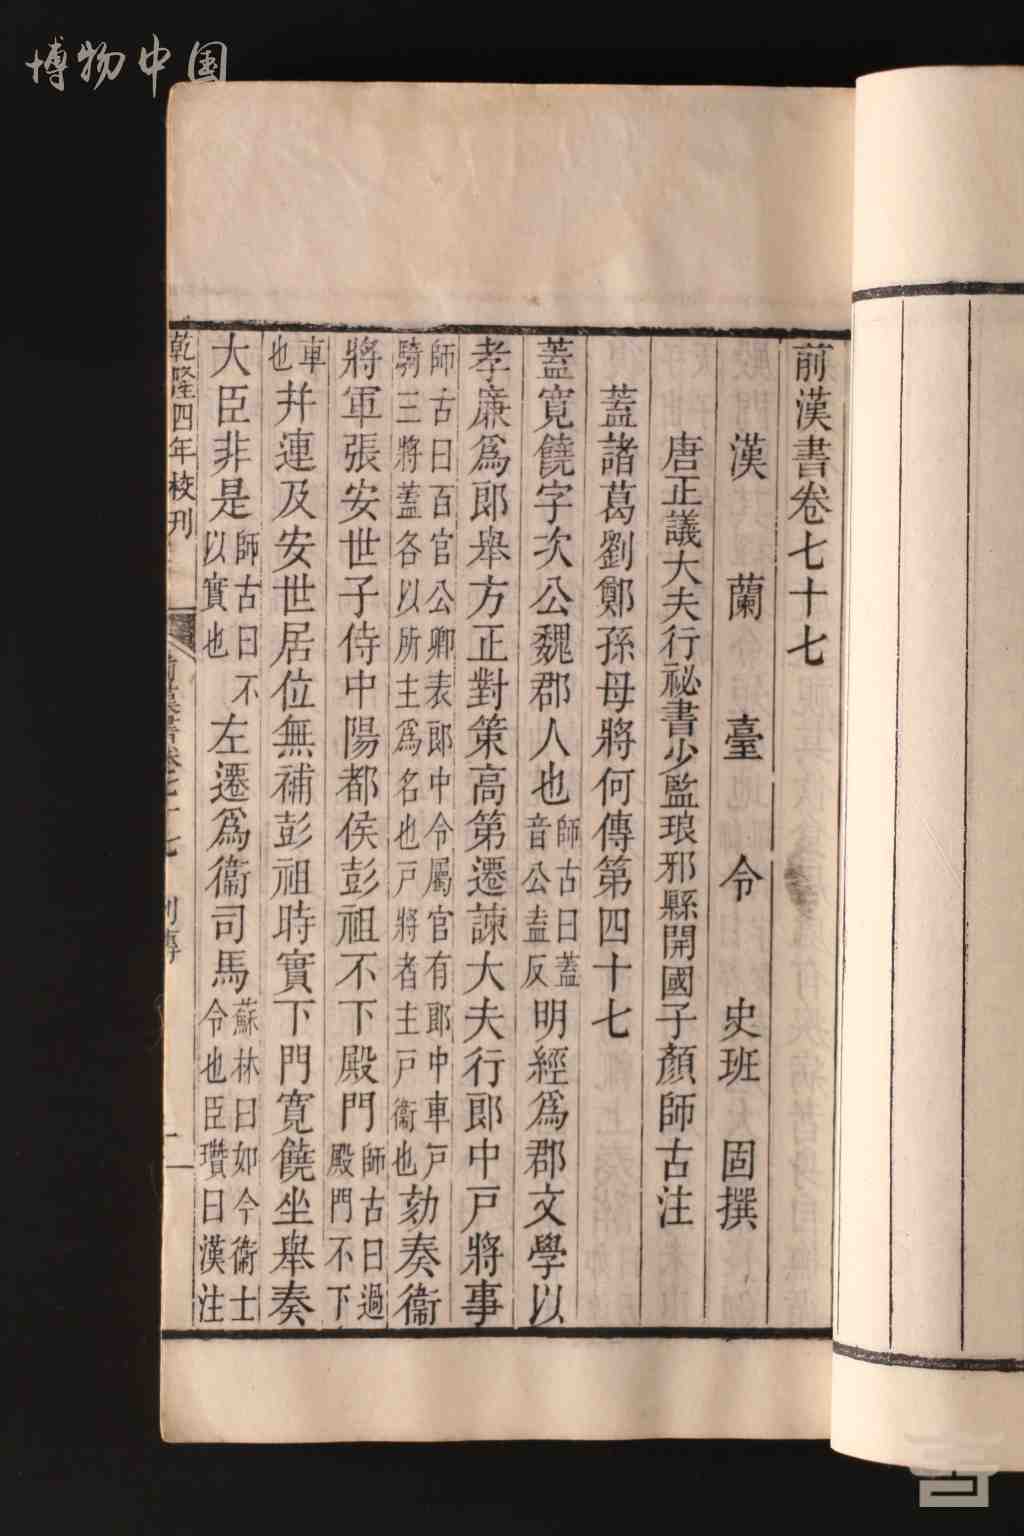 博物中国
前漢書卷七十七
漢蘭臺令史班固撰
唐正議大夫行祕書少監琅邪縣開國子顏師古注
蓋諸葛劉鄭孫毋將何傳第四十七
蓋寬饒字次公魏郡人也師古曰蓋音公盍反明經爲郡文學以
孝廉爲郎舉方正對策高第遷諫大夫行郎中戶將事
師古曰百官公卿表郎中令屬官有郎中車戶騎三將蓋各以所主爲名也戶將者主戶衞也劾奏衞
將軍張安世子侍中陽都侯彭祖不下殿門師古曰過殿門不下
車也并連及安世居位無補彭祖時實下門寬饒坐舉奏
大臣非是師古曰不以實也左遷爲衞司馬蘇林曰如今衞士令也臣瓚曰漢注
乾隆四年校刊
前漢書卷七十七
列傳
一